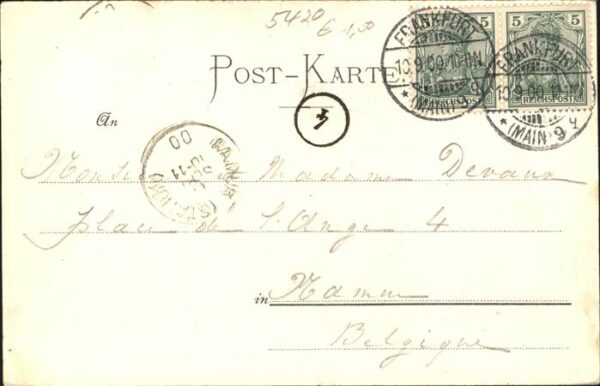 5420
€ 1,00
5 5
REICHSPOST
FRANKFURT
10.9.00.10-11N.
* (MAIN) 9 q
FRANKFURT
10.9.00.10-11N.
* (MAIN) 9 q
POST-KARTE
4
An
NAMUR (STATION)
10-11
SEPT
00
Monsieur et Madame Devaux
place de l'Ange 4
in Namur
Belgique